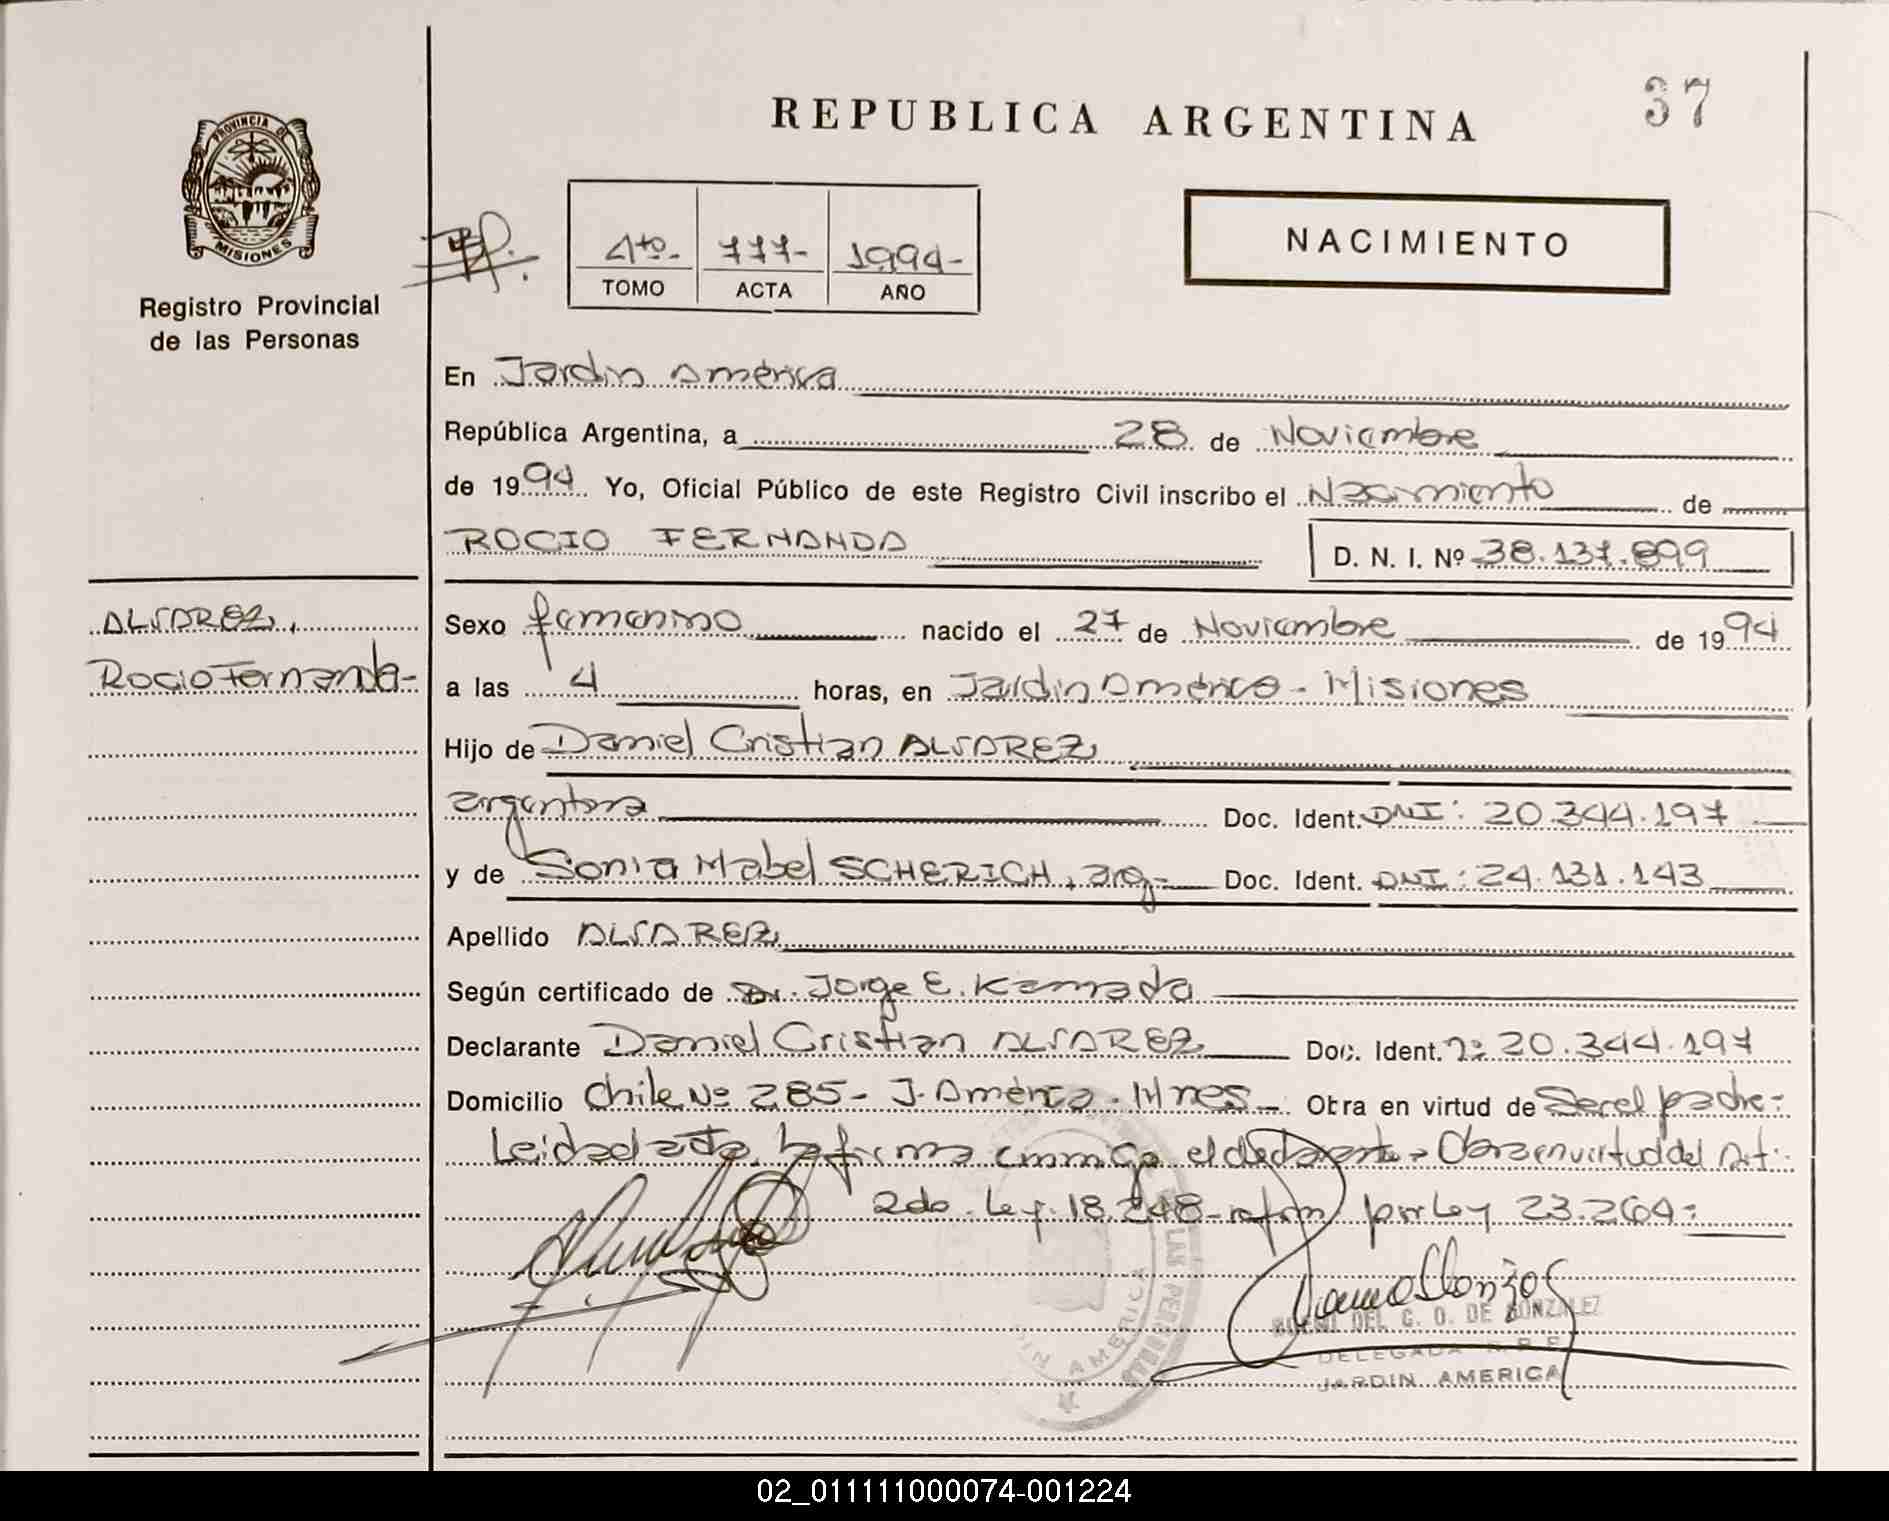 37
REPUBLICA ARGENTINA
PROVINCIA DE
MISIONES
Registro Provincial
de las Personas
4to.- 777- 1994-
TOMO ACTA AÑO
NACIMIENTO
En Jardin América
República Argentina, a 28 de Noviembre
de 1994 Yo, Oficial Público de este Registro Civil inscribo el Nacimiento de
ROCIO FERNANDA D. N. I. Nº 38.137.899
ALVAREZ,
Rocio Fernanda-
Sexo femenino nacido el 27 de Noviembre de 1994
a las 4 horas, en Jardin América - Misiones
Hijo de Daniel Cristian ALVAREZ,
argentina Doc. Ident. DNI: 20.344.197
y de Sonia Mabel SCHERICH, arg.- Doc. Ident. DNI: 24.131.143
Apellido ALVAREZ
Según certificado de Dr. Jorge E. Kamada
Declarante Daniel Cristian ALVAREZ Doc. Ident. nº 20.344.197
Domicilio Chile Nº 285- J. América - Mnes - Obra en virtud de Ser el padre-
Leida el acta, la firma conmigo el declarante - Obra en virtud del Art.
2do. Ley. 18.248- reform por Ley 23.264-
DEL C. O. DE GONZALEZ
DELEGADA R.P.P.
JARDIN AMERICA
LAS PERSONAS
JARDIN AMERICA
02_011111000074-001224